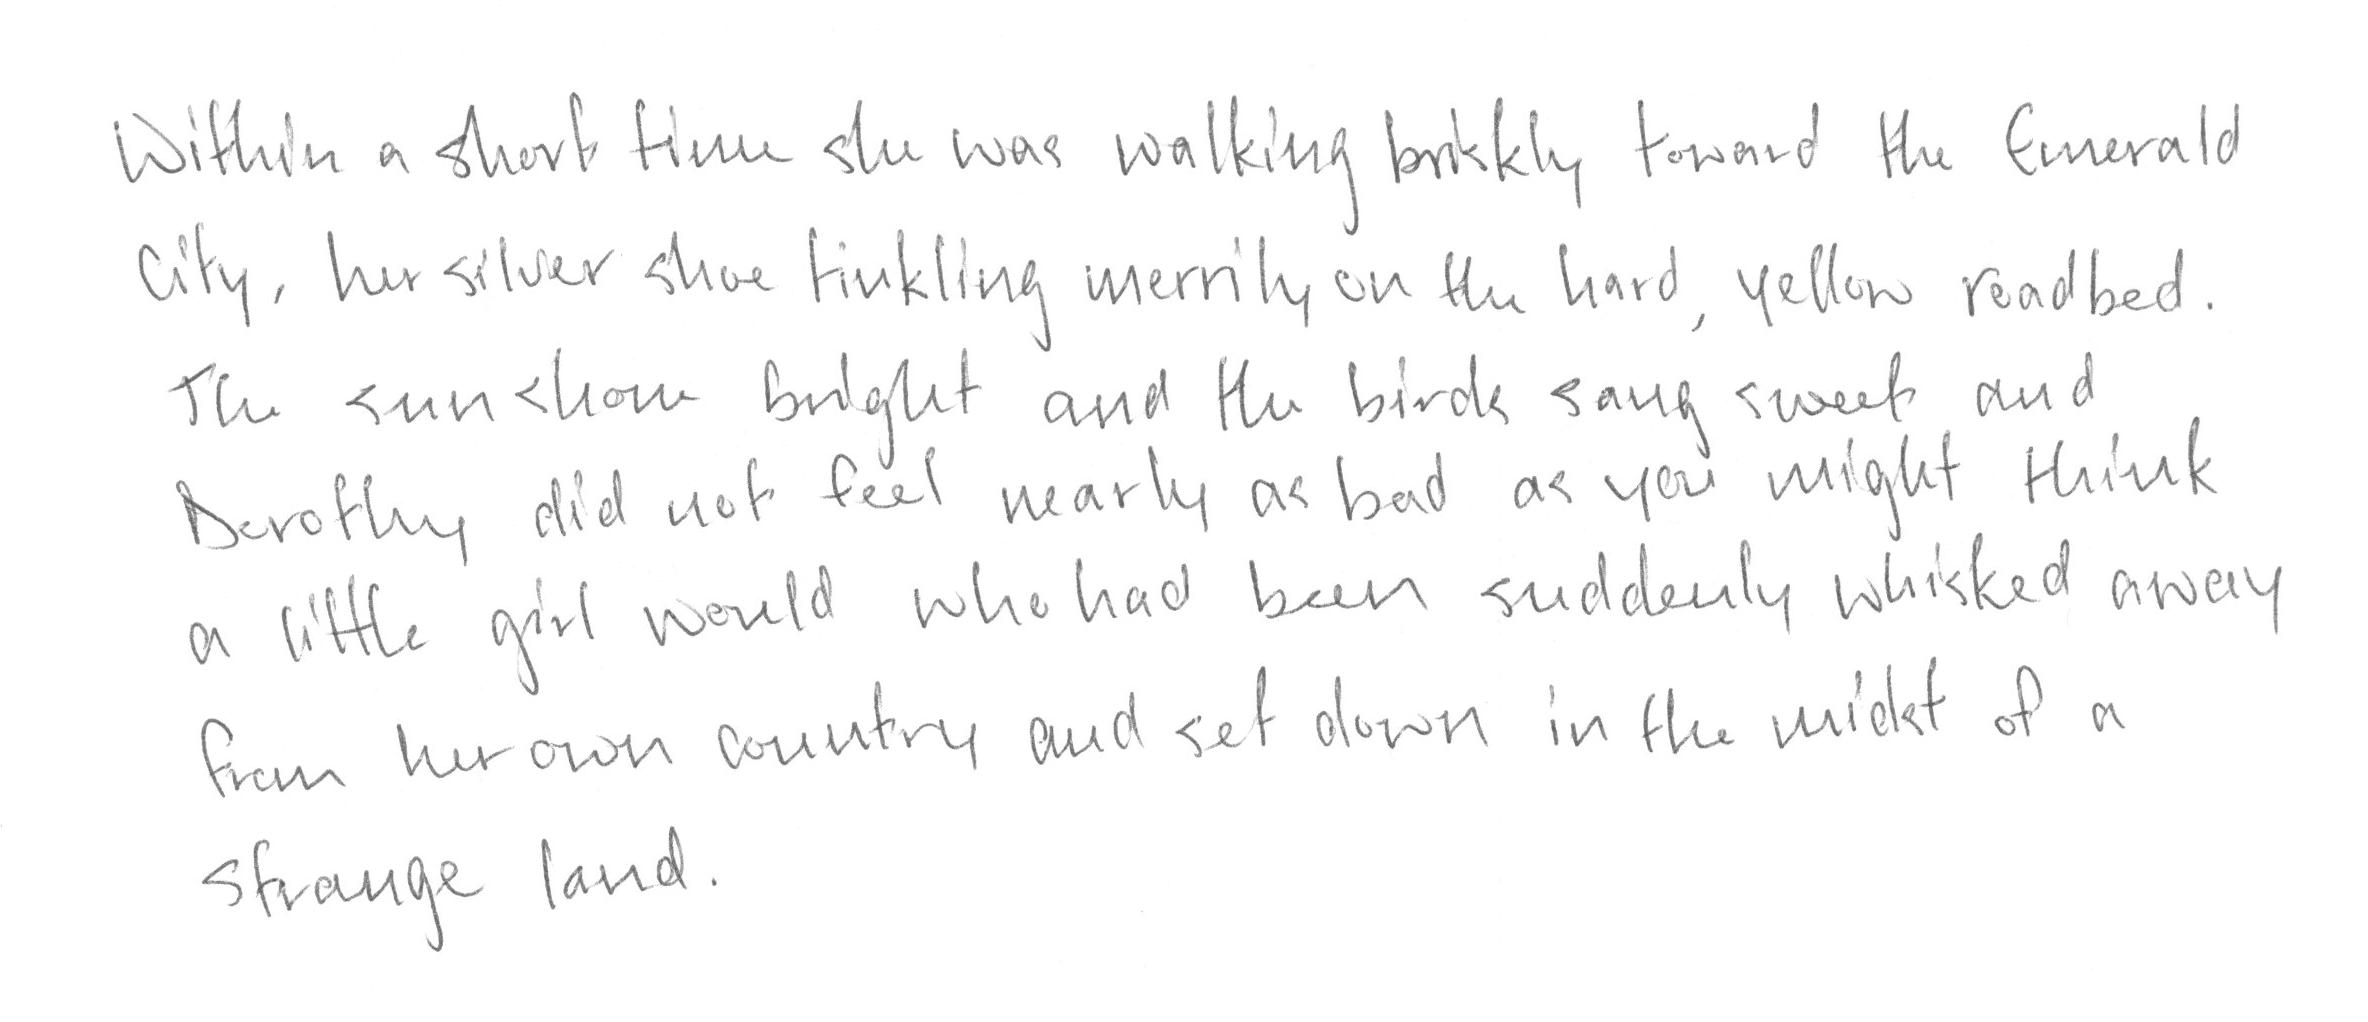 Within a short time she was walking briskly toward the Emerald
City, her silver shoe tinkling merrily on the hard, yellow roadbed.
The sun shone bright and the birds sang sweet and
Dorothy did not feel nearly as bad as you might think
a little girl would who had been suddenly whisked away
from her own country and set down in the midst of a
strange land.